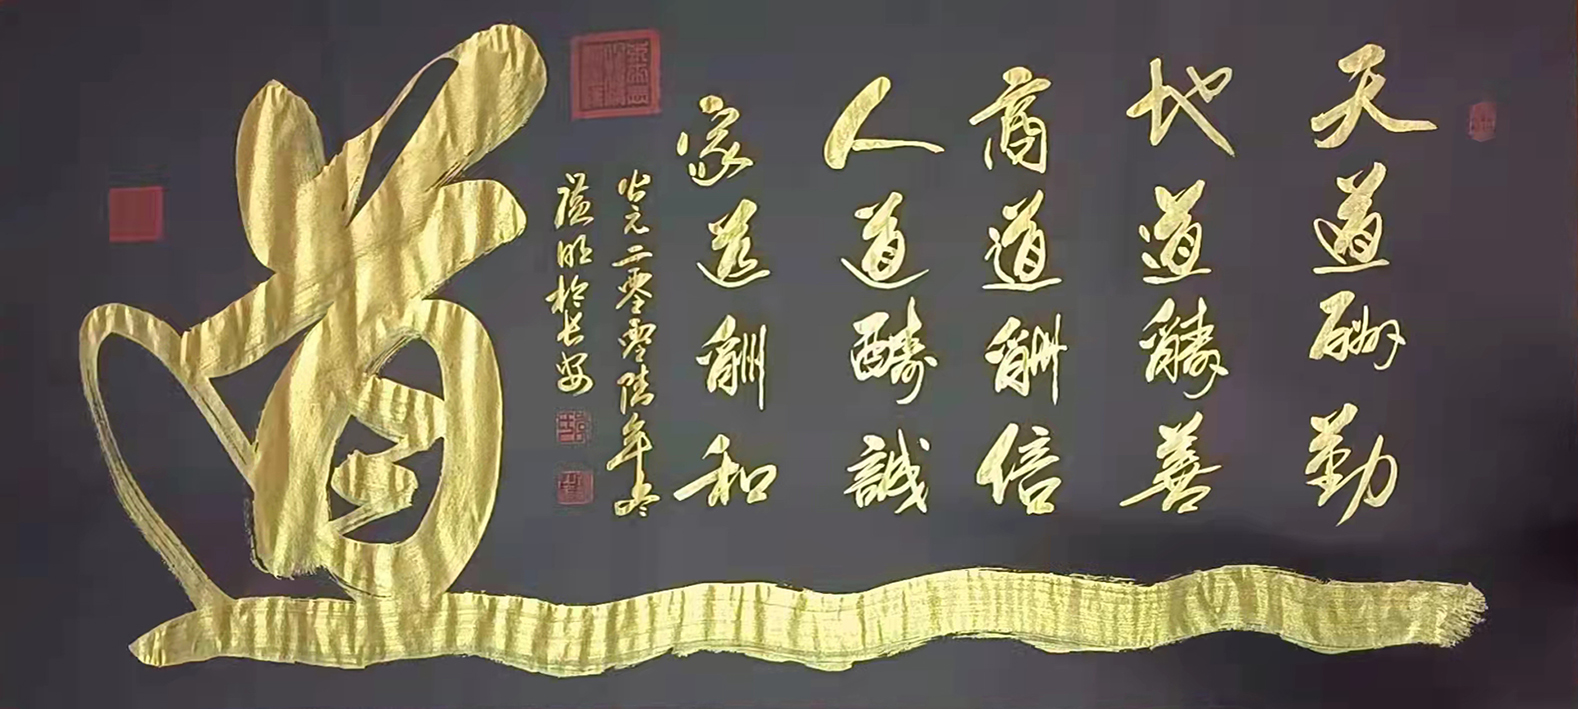 天道酬勤
地道酬善
商道酬信
人道酬誠
家道酬和
公元二零零陸年冬
蘊明於長安
道